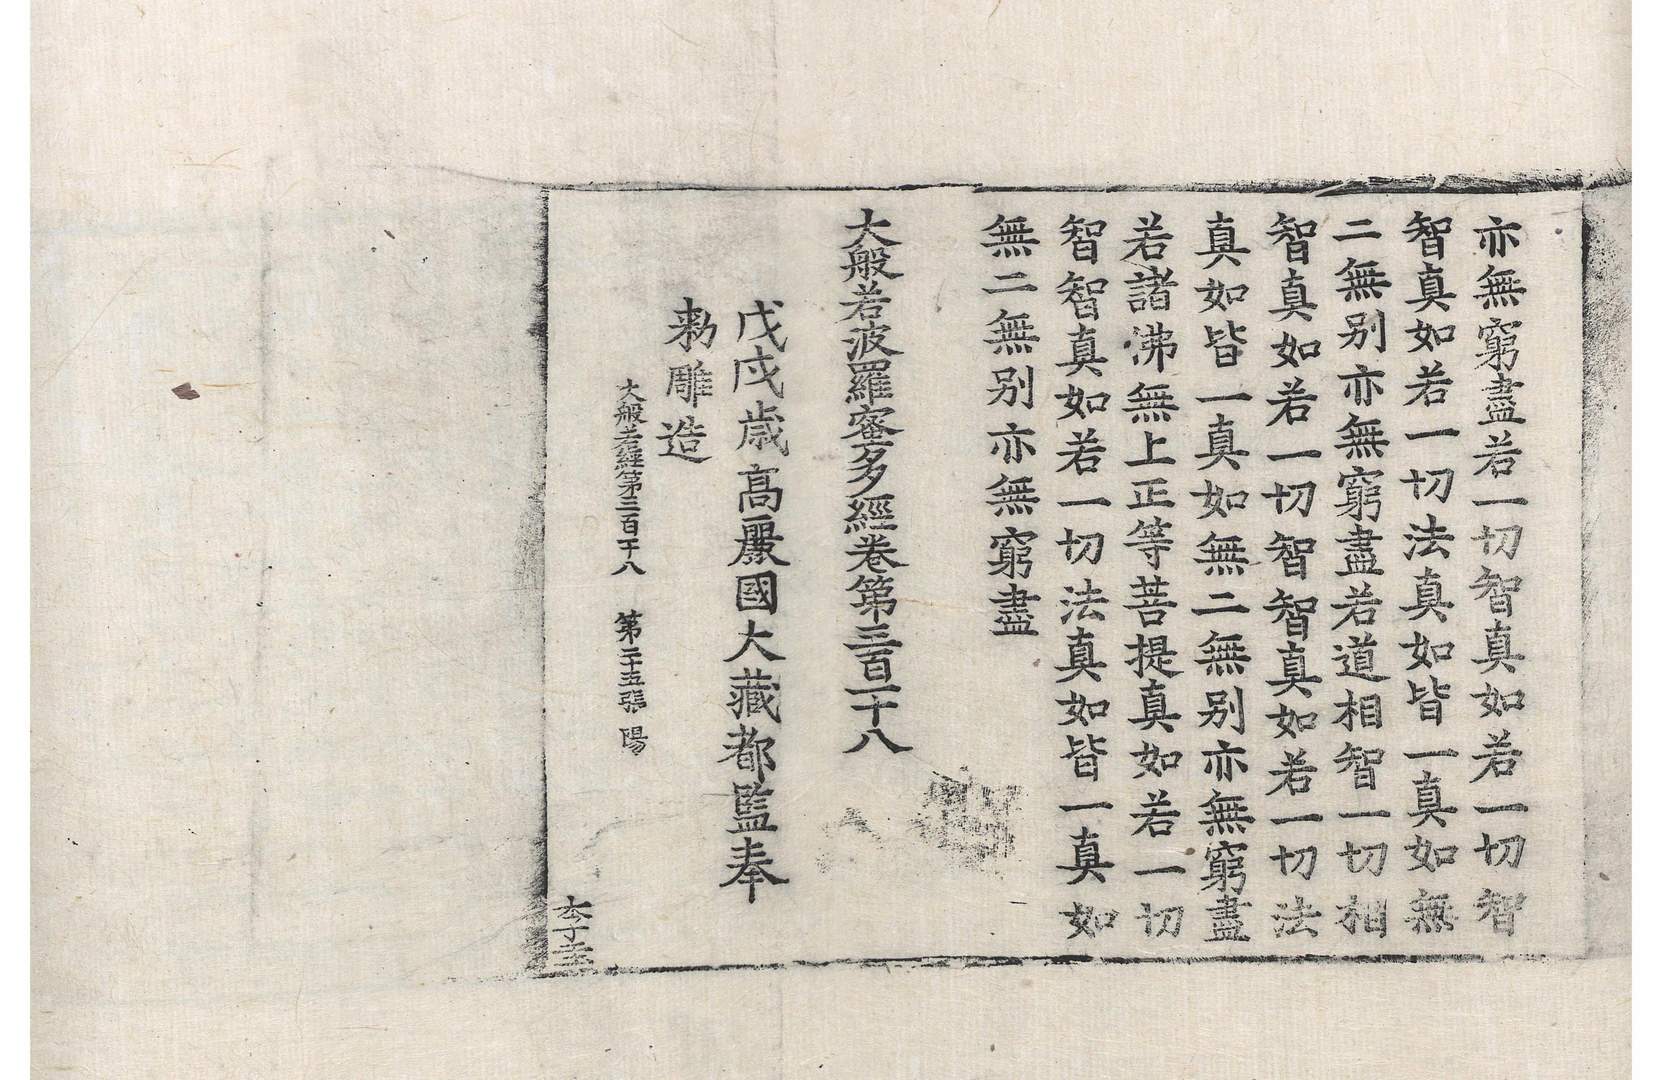 亦無窮盡若一切智真如若一切智
智真如若一切法真如皆一真如無
二無别亦無窮盡若道相智一切相
智真如若一切智智真如若一切法
真如皆一真如無二無别亦無窮盡
若諸佛無上正等菩提真如若一切
智智真如若一切法真如皆一真如
無二無别亦無窮盡
大般若波羅蜜多經卷第三百一十八
戊戌歲高麗國大藏都監奉
勅雕造
大般若經第三百十八 第二十五張 陽